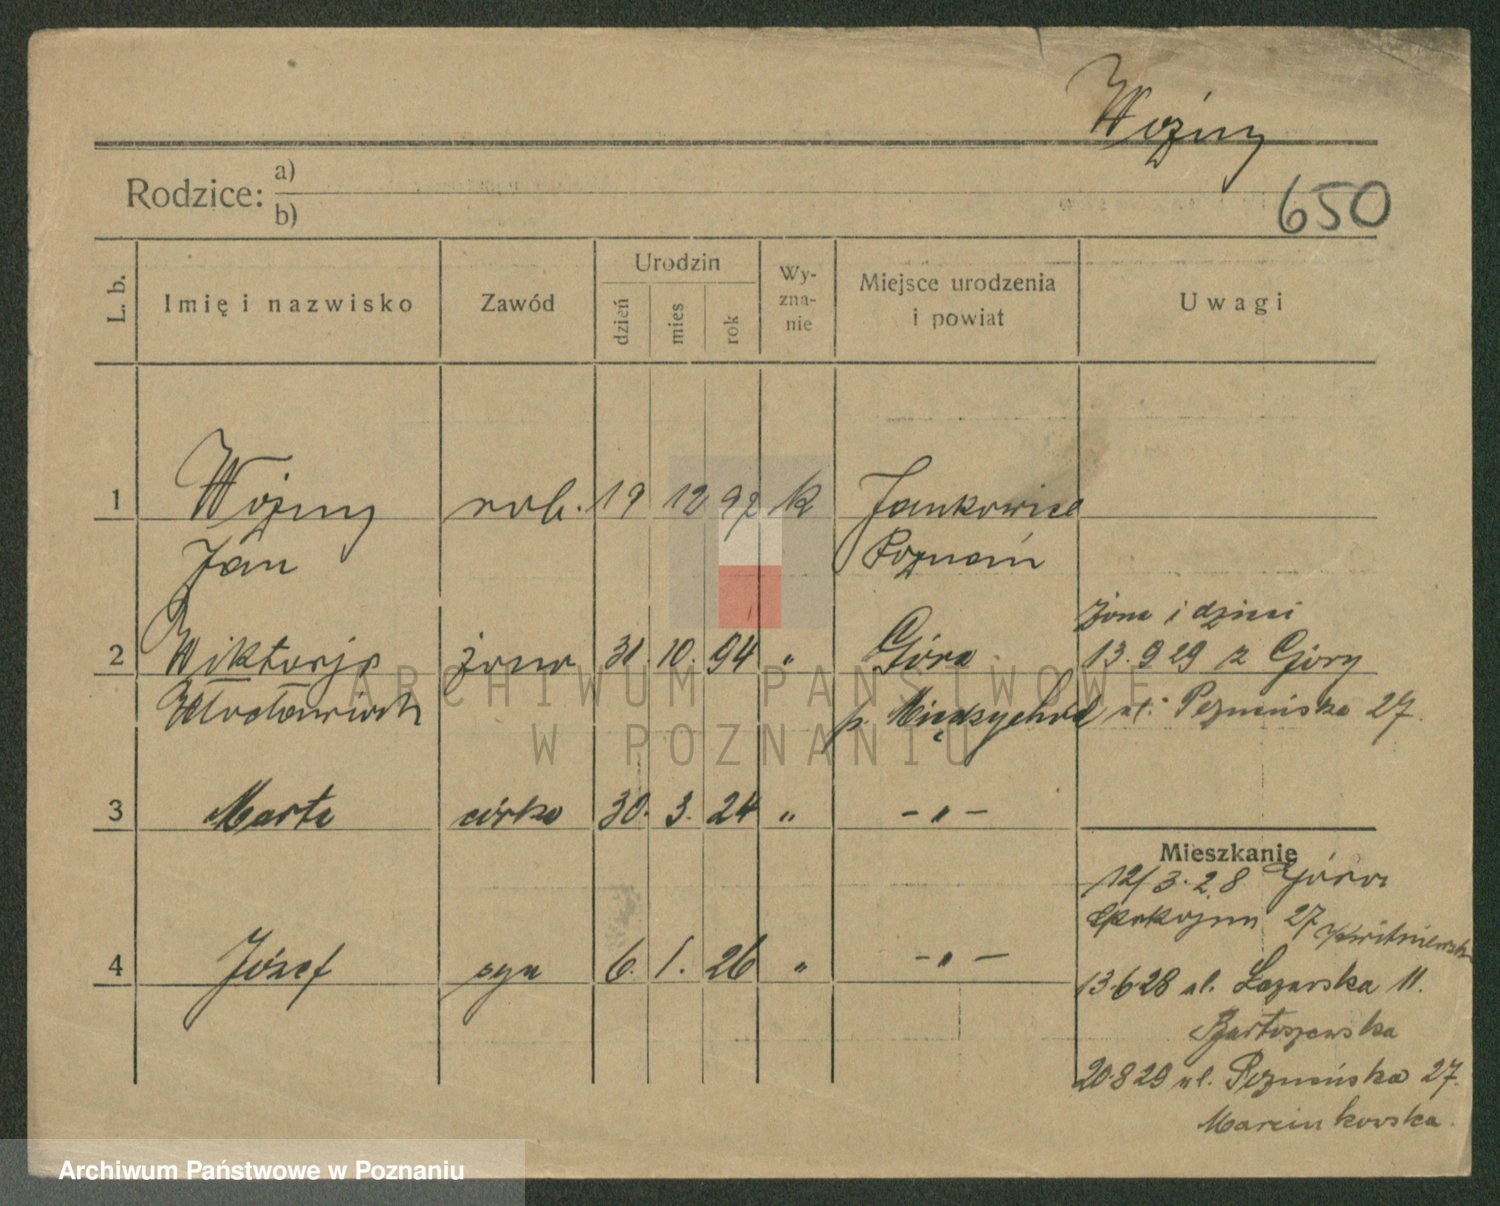 Woźny
650
Rodzice: a)
b)
L. b. Imię i nazwisko Zawód Urodzin dzień mies rok Wy-zna-nie Miejsce urodzenia i powiat Uwagi
1 Woźny rob. 19 12 92 k Jankowice
Jan Poznań
żona i dzieci
2 Wiktorja żona 31. 10. 94 " Góra 13.9 29 z Góry
p. Międzychód ul. Poznańska 27.
3 Marta córka 30. 3. 24 " - " -
Mieszkanie
12/3.28 Góra
27
4 Józef syn 6. 1. 26 " - " -
13.6.28 ul. Łazarska 11.
Bartoszewska
20.8 29 ul. Poznańska 27.
Marcinkowska.
ARCHIWUM PAŃSTWOWE
W POZNANIU
Archiwum Państwowe w Poznaniu